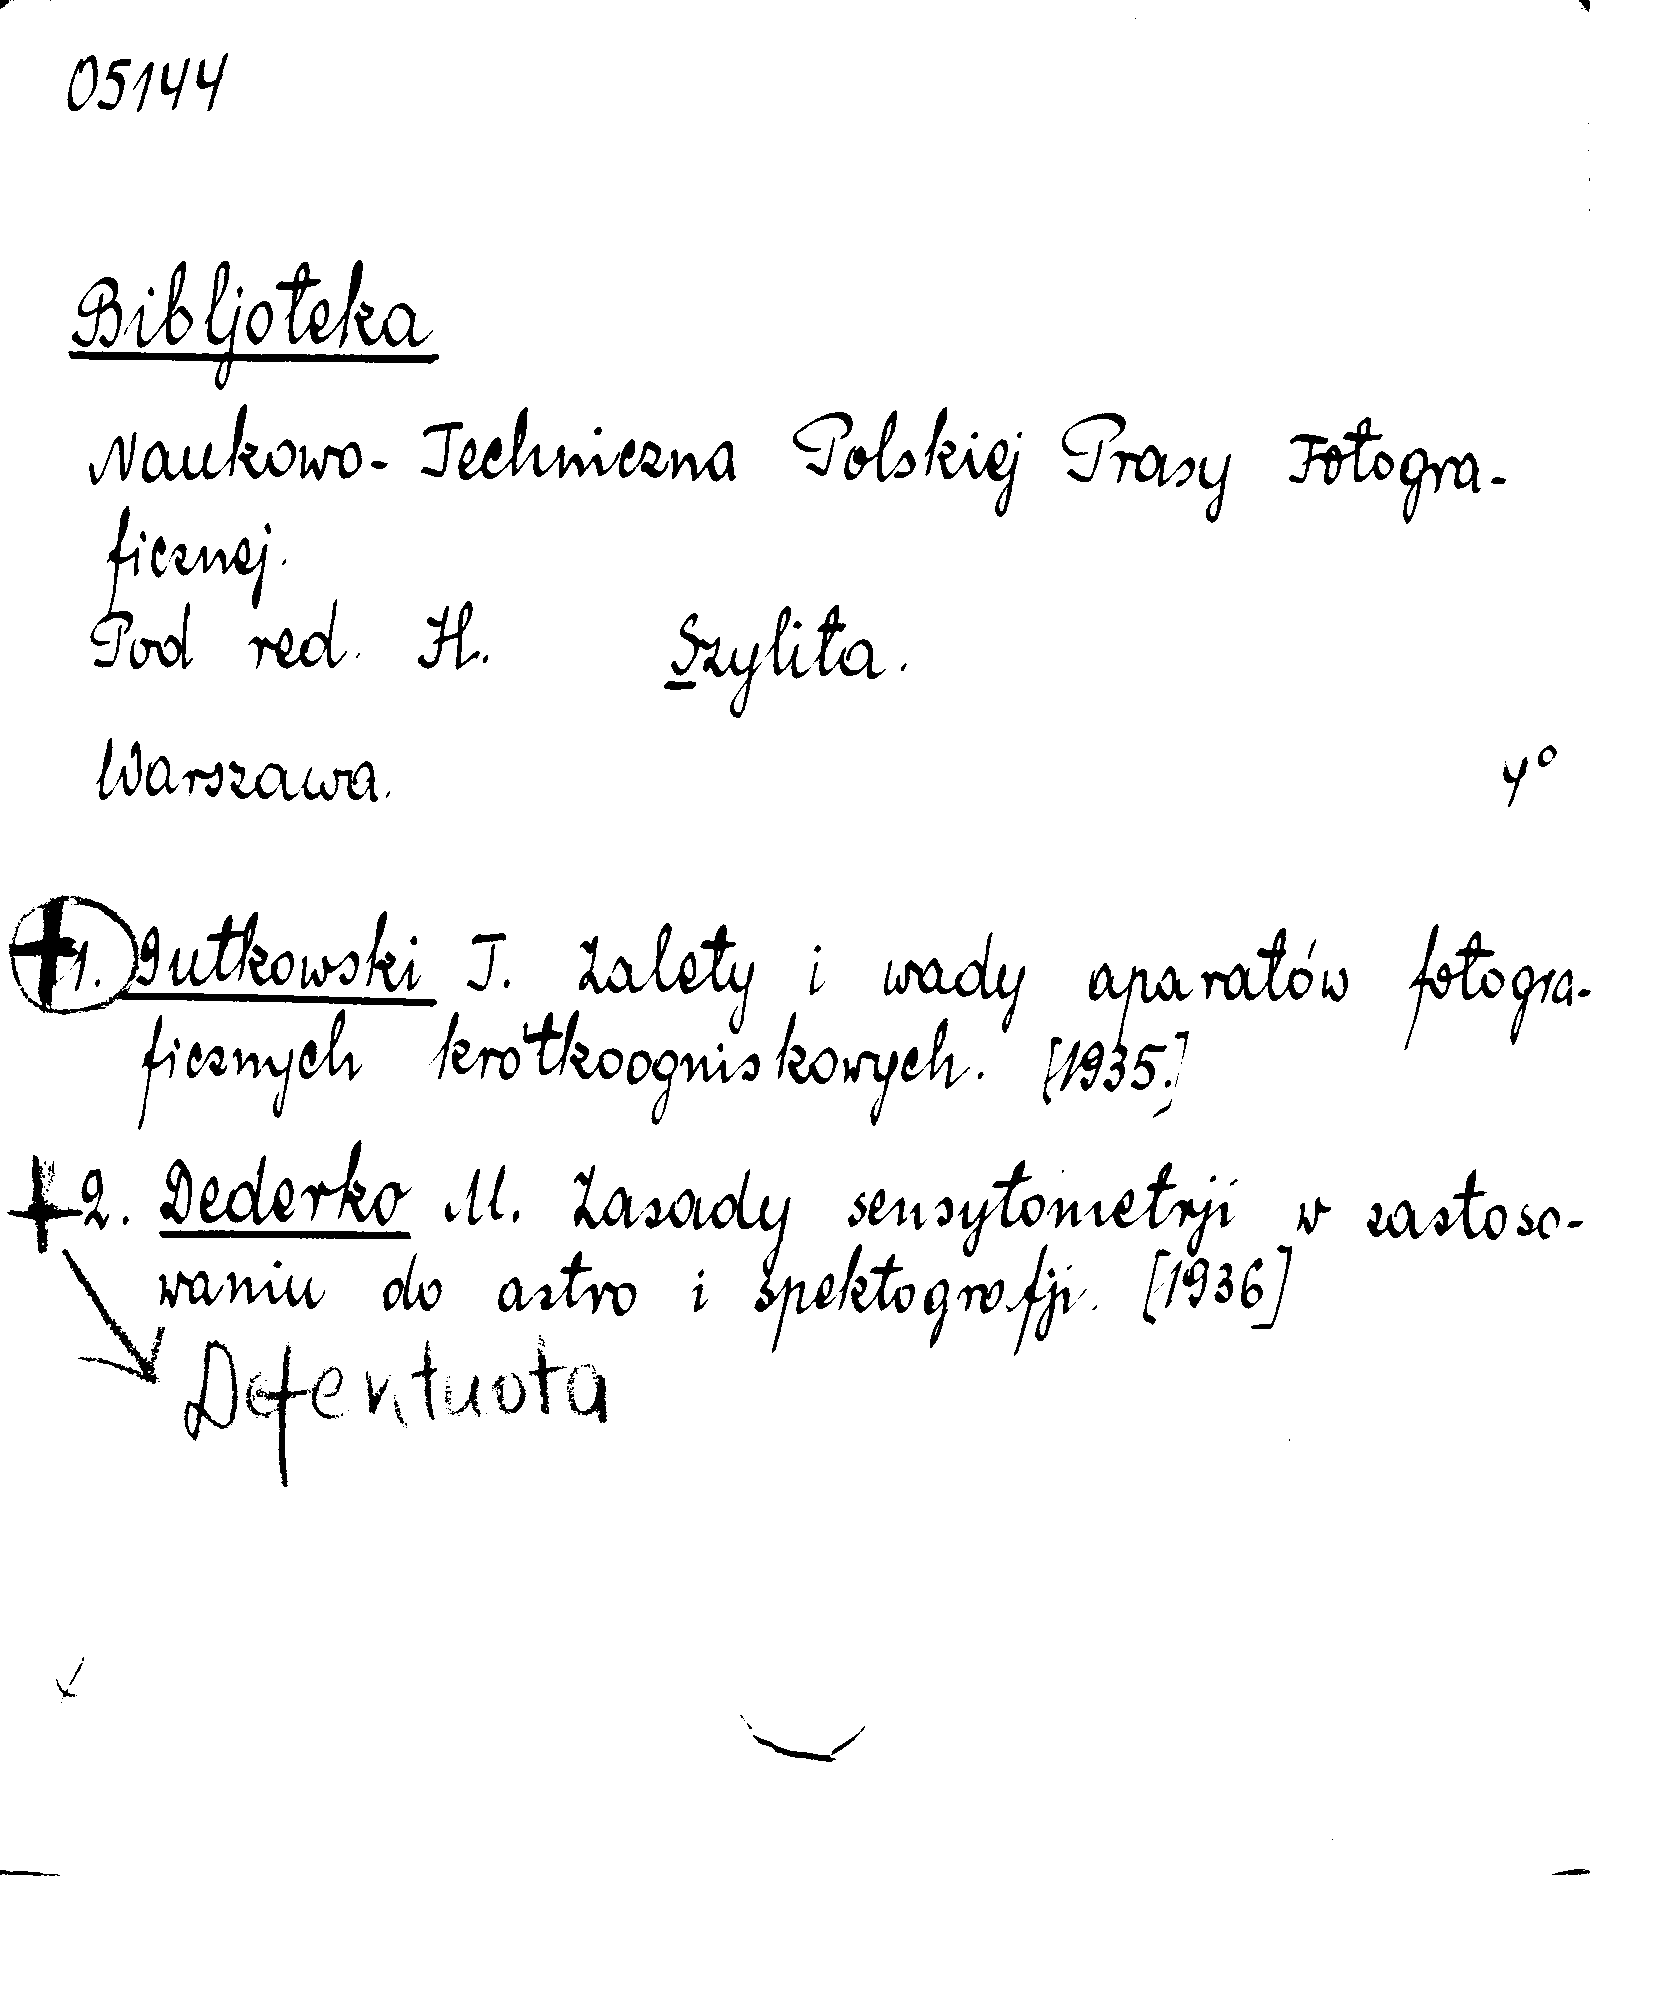 05144
Bibljoteka
Naukowo-Techniczna Polskiej Prasy Fotogra-
ficznej.
Pod red. H. Szylita.
Warszawa. 4°
1. Gutkowski J. Zalety i wady aparatów fotogra-
ficznych krótkoogniskowych. [1935.]
2. Dederko M. Zasady sensytometrji w zastoso-
waniu do astro i spektografji. [1936]